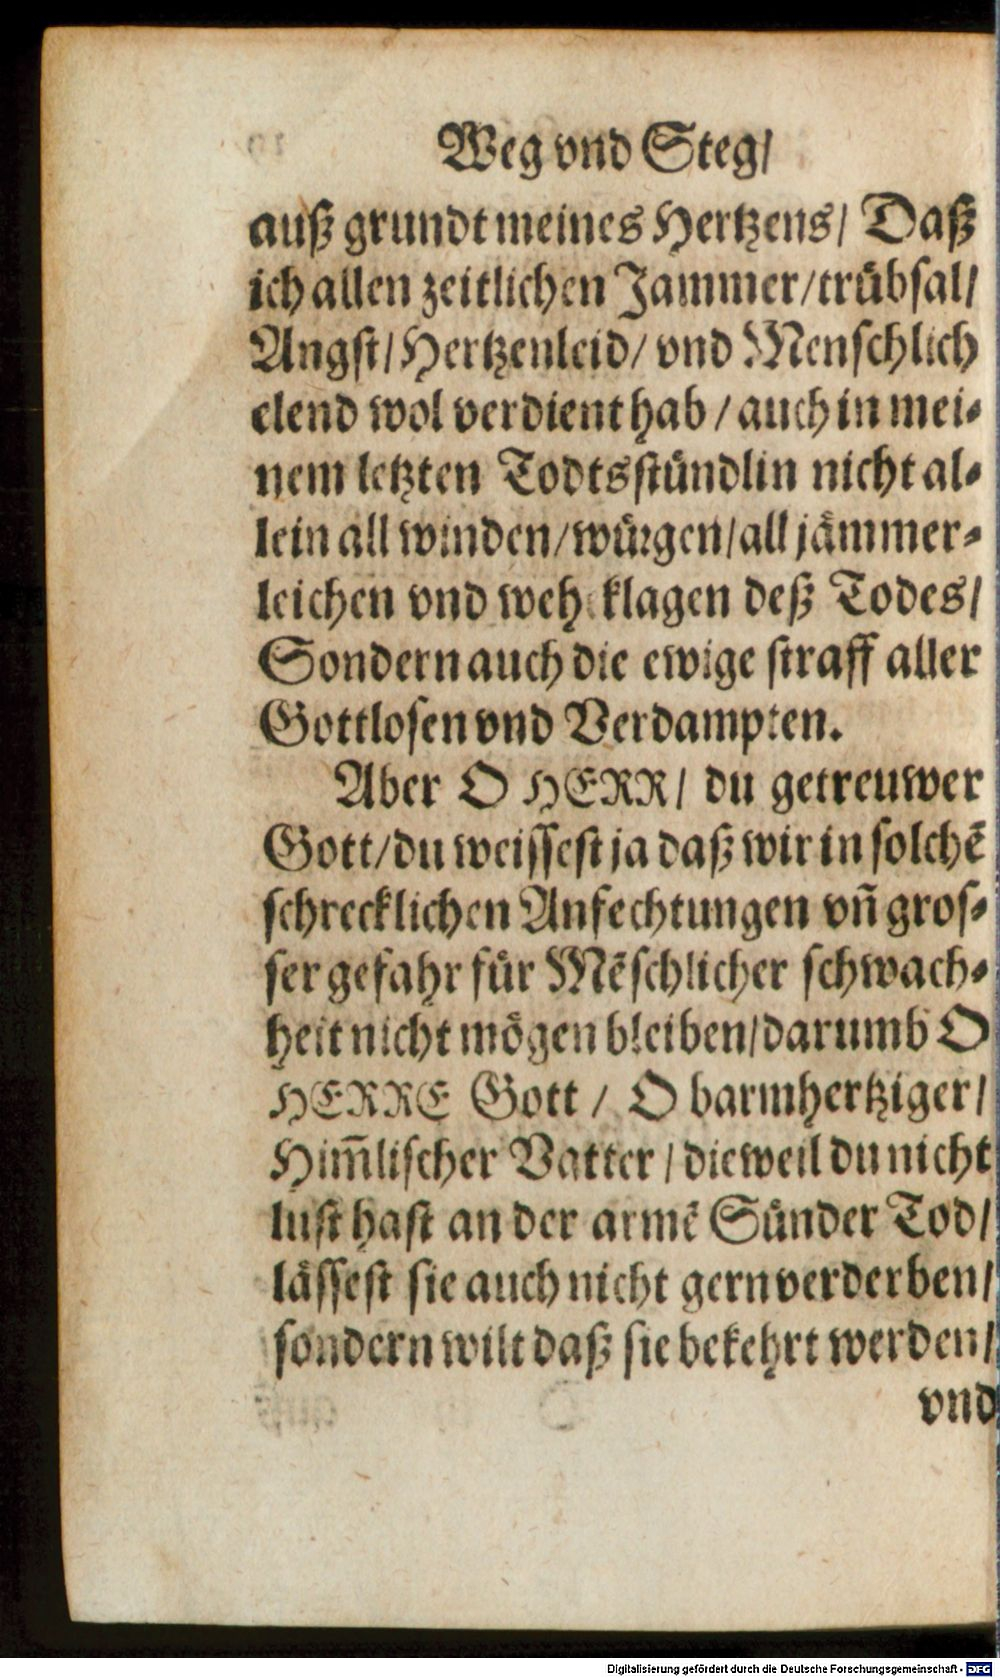 Weg vnd Steg/
auß grundt meines Hertzens/ Daß
ich allen zeitlichen Jammer/trübsal/
Angst/Hertzenleid/ vnd Menschlich
elend wol verdient hab / auch in mei-
nem letzten Todtsstündlin nicht al-
lein all winden/würgen/all jämmer-
leichen vnd weh klagen deß Todes/
Sondern auch die ewige straff aller
Gottlosen vnd Verdampten.
Aber O HERR/ du getreuwer
Gott/du weissest ja daß wir in solchē
schrecklichen Anfechtungen vñ gros-
ser gefahr für Mēschlicher schwach-
heit nicht mögen bleiben/darumb O
HERRE Gott / O barmhertziger/
Him̄lischer Vatter / dieweil du nicht
lust hast an der armē Sünder Tod/
lässest sie auch nicht gern verderben/
sondern wilt daß sie bekehrt werden/
vnd
Digitalisierung gefördert durch die Deutsche Forschungsgemeinschaft - DFG